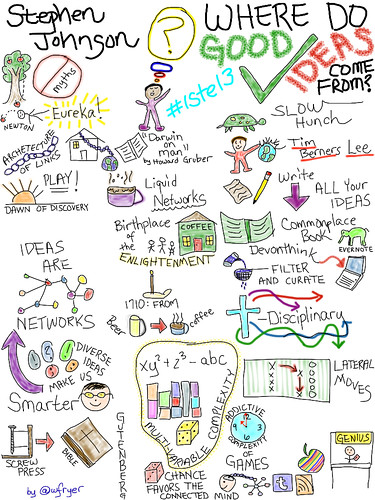 Stephen Johnson
?
WHERE DO
GOOD
IDEAS
COME
FROM?
myths
#ISTE13
Eureka!
NEWTON
SLOW
Hunch
ARCHITECTURE
OF LINKS
"Darwin
on
man"
by Howard Gruber
Tim
Berners Lee
PLAY!
DAWN OF DISCOVERY
Liquid
Networks
Write
ALL YOUR
IDEAS
Birthplace
of
the
ENLIGHTENMENT
COFFEE
Commonplace
Book
EVERNOTE
Devonthink
FILTER
AND CURATE
IDEAS
ARE
NETWORKS
1710: FROM
Beer
Coffee
-Disciplinary
DIVERSE
IDEAS
MAKE US
Smarter
xy² + z³ - abc
MULTIVARIABLE COMPLEXITY
LATERAL
MOVES
ADDICTIVE
COMPLEXITY
of
GAMES
12
3
6
9
GENIUS
SCREW
PRESS
BIBLE
GUTENBERG
CHANCE
FAVORS THE
CONNECTED MIND
t
by @wfryer